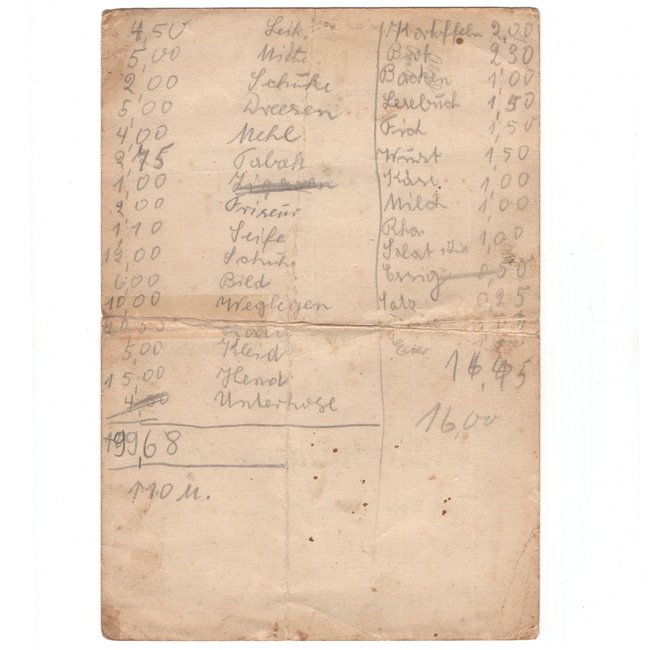 4,50 Leih.
5,00 Miete
2,00 Schuhe
5,00 Dreesen
4,00 Mehl
2,75 Tabak
1,00 Zigaren
2,00 Friseur
1,10 Seife
12,00 Schuhe
6,00 Bild
10,00 Weglegen
5,00 Kleid
15,00 Hemd
4,00 Unterhose
99,68
110 M.
Kartoffeln 2,00
Brot 2 30
Backen 1,00
Lesebuch 1,50
Fisch 1,50
Wurst 1,50
Käse 1,00
Milch 1,00
Rha
Salat 1,00
Essig 0,50
Salz 0,25
Eier
16,00